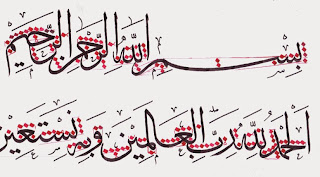 بسم الله الرحمن الرحيم
الحمد لله رب العالمين وبه نستعين